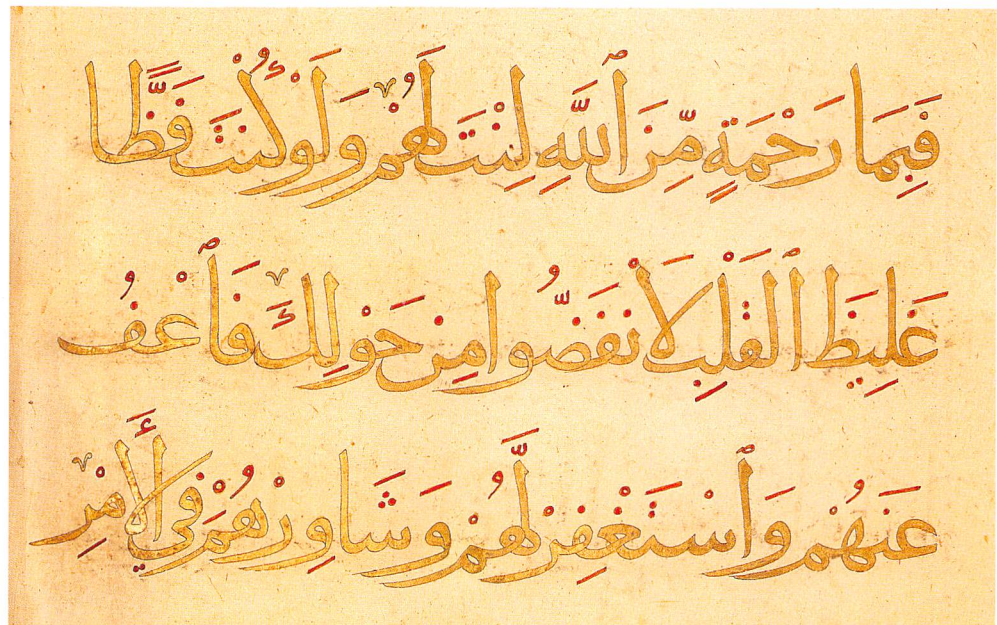 فَبِمَا رَحْمَةٍ مِّنَ ٱللَّهِ لِنْتَ لَهُمْ وَلَوْ كُنْتَ فَظًّا
غَلِيظَ ٱلْقَلْبِ لَأَنْفَضُّوا مِنْ حَوْلِكَ فَٱعْفُ
عَنْهُمْ وَٱسْتَغْفِرْ لَهُمْ وَشَاوِرْهُمْ فِي ٱلْأَمْرِ